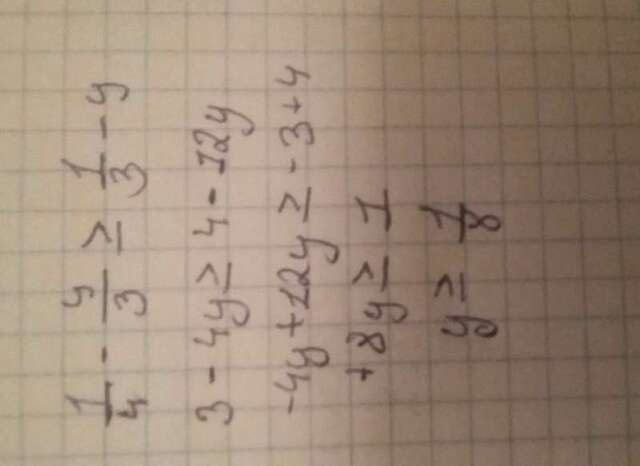 1/4 - y/3 ≥ 1/3 - y
3 - 4y ≥ 4 - 12y
-4y + 12y ≥ -3 + 4
+8y ≥ 1
y ≥ 1/8